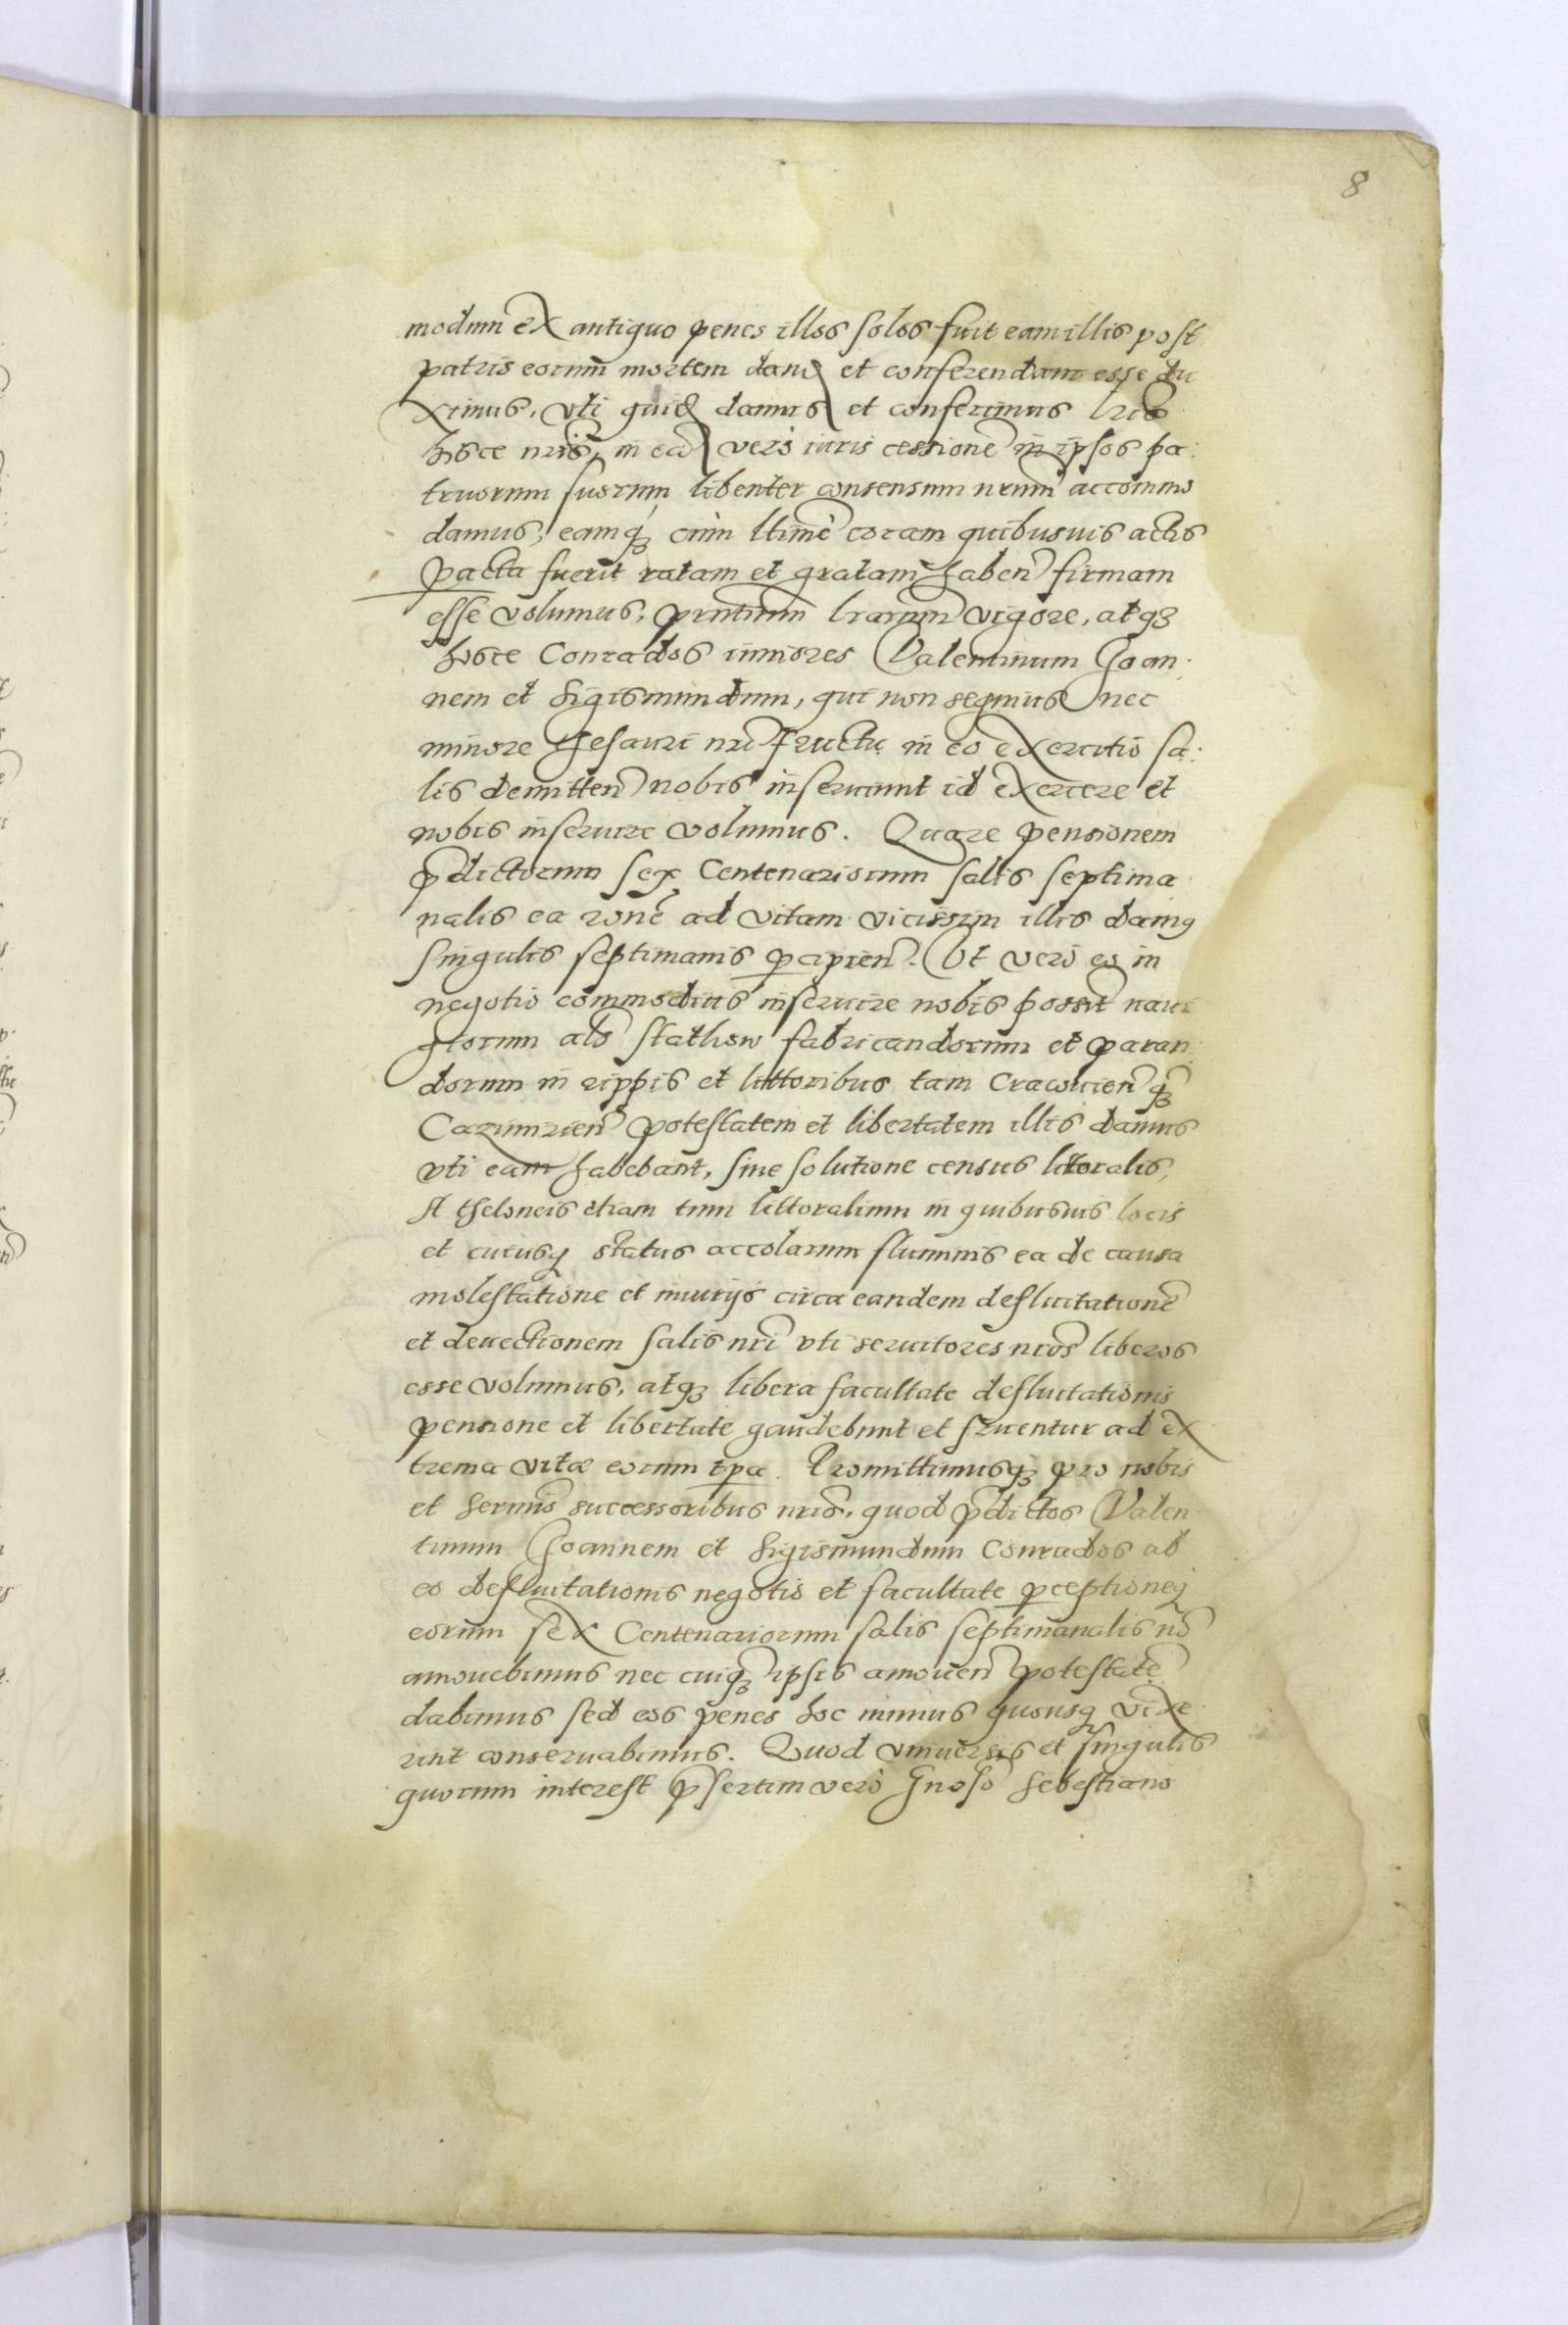 8
modum ex antiquo penes illos solos fuit eam illis post
patris eorum mortem dand et conferendam esse du
ximus, vti quid damus et conferimus lris
hisce nris, in ea vero iuris cessione in ipsos pa:
truorum suorum libenter consensum nrum accommo
damus, eamq3 cum ltime coram quibusuis actis
pacta fuerit ratam et gratam haben firmam
esse volumus, pntium lrarum vigore, atq3
hosce Conrados iuniores Valentinum Joan:
nem et Sigismundum, qui non segnius nec
minore thesauri nri fructu in eo exercitio sa:
lis demitten nobis inseruiunt id exercere et
nobis inseruire volumus. Quare pensionem
pdictorum sex Centenariorum salis septima
nalis ea rone ad vitam vicissim illis damus
singulis septimanis pcipien. Vt vero eo in
negotio commodius inseruire nobis possit naui
giorum als stathow fabricandorum et paran:
dorum in rippis et littoribus tam Cracouien q3
Cazimirien potestatem et libertatem illis damus
vti eam habebant, sine solutione census littoralis,
A theloneis etiam tum littoralium in quibusuis locis
et cuiusq status accolarum fluminis ea de causa
molestatione et iniurijs circa eandem defluitatione
et deuectionem salis nri vti seruitores nros liberos
esse volumus, atq3 libera facultate defluitationis
pensione et libertate gaudebunt et fruentur ad ex
trema vitæ eorum tpa. Promittimusq3 pro nobis
et Sermis successoribus nris, quod pdictos Valen
tinum Joannem et Sigismundum Conrados ab
eo defluitationis negotio et facultate pceptioneq
eorum sex Centenariorum salis septimanalis no
amouebimus nec cuiq3 ipsis amouen potestate
dabimus sed eos penes hoc munus quousq vixe
rint conseruabimus. Quod vniuersis et singulis
quorum interest psertim vero Gnoso Sebestiano